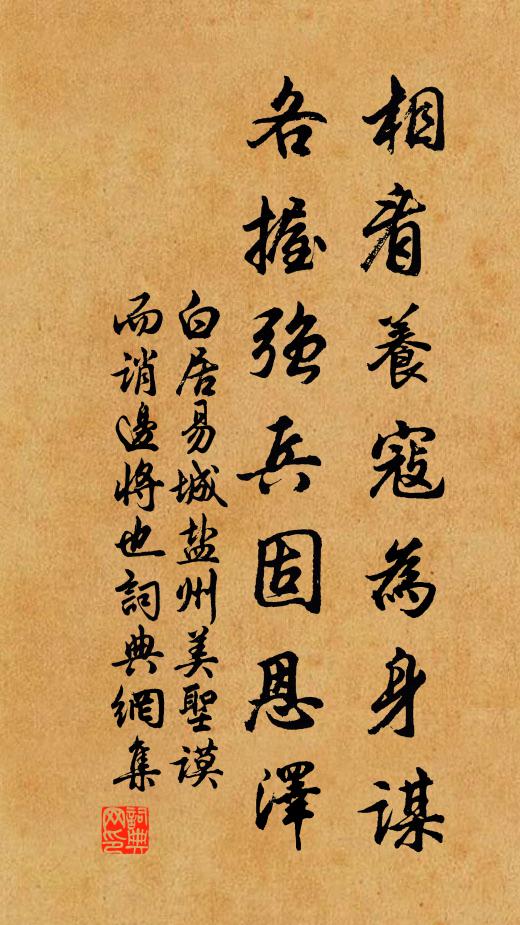 相看養寇為身謀
各握強兵固恩澤
白居易城盐州美聖謨
而誚邊將也詞典網集
詞典网印